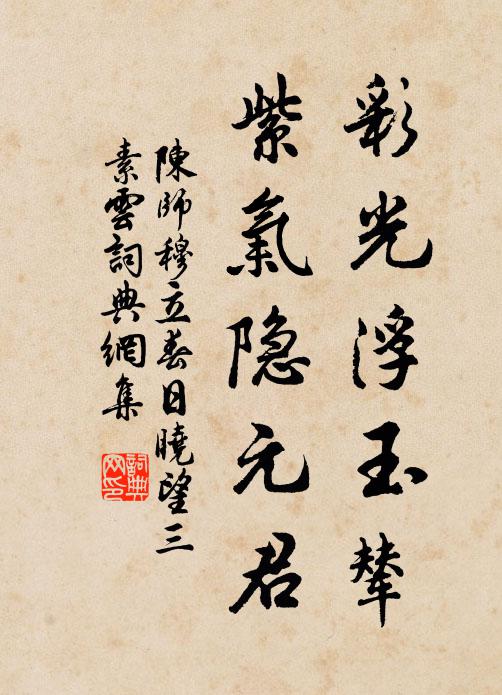 彩光浮玉輦
紫氣隐元君
陳師穆立春日曉望三
素雲詞典網集
詞典网印